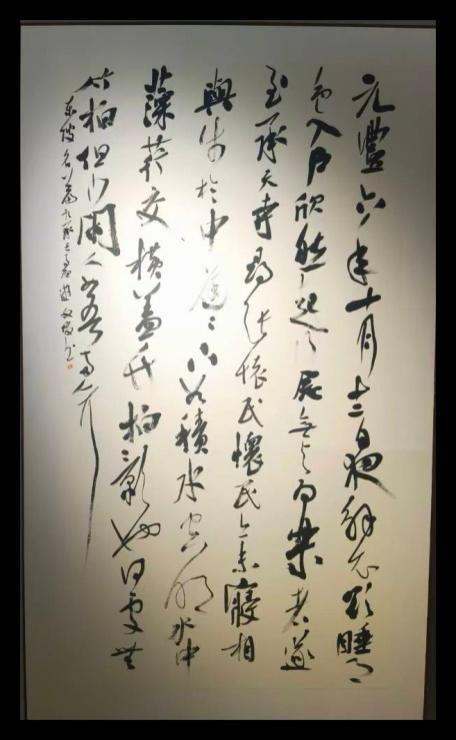 元豐六年十月十二日夜解衣欲睡月
色入戶欣然起行念無与為樂者遂
至承天寺尋張懷民懷民亦未寢相
與步於中庭庭下如積水空明水中
藻荇交橫蓋竹柏影也何處無
竹柏但少閑人如吾兩人耳
東坡名篇記承天寺夜遊